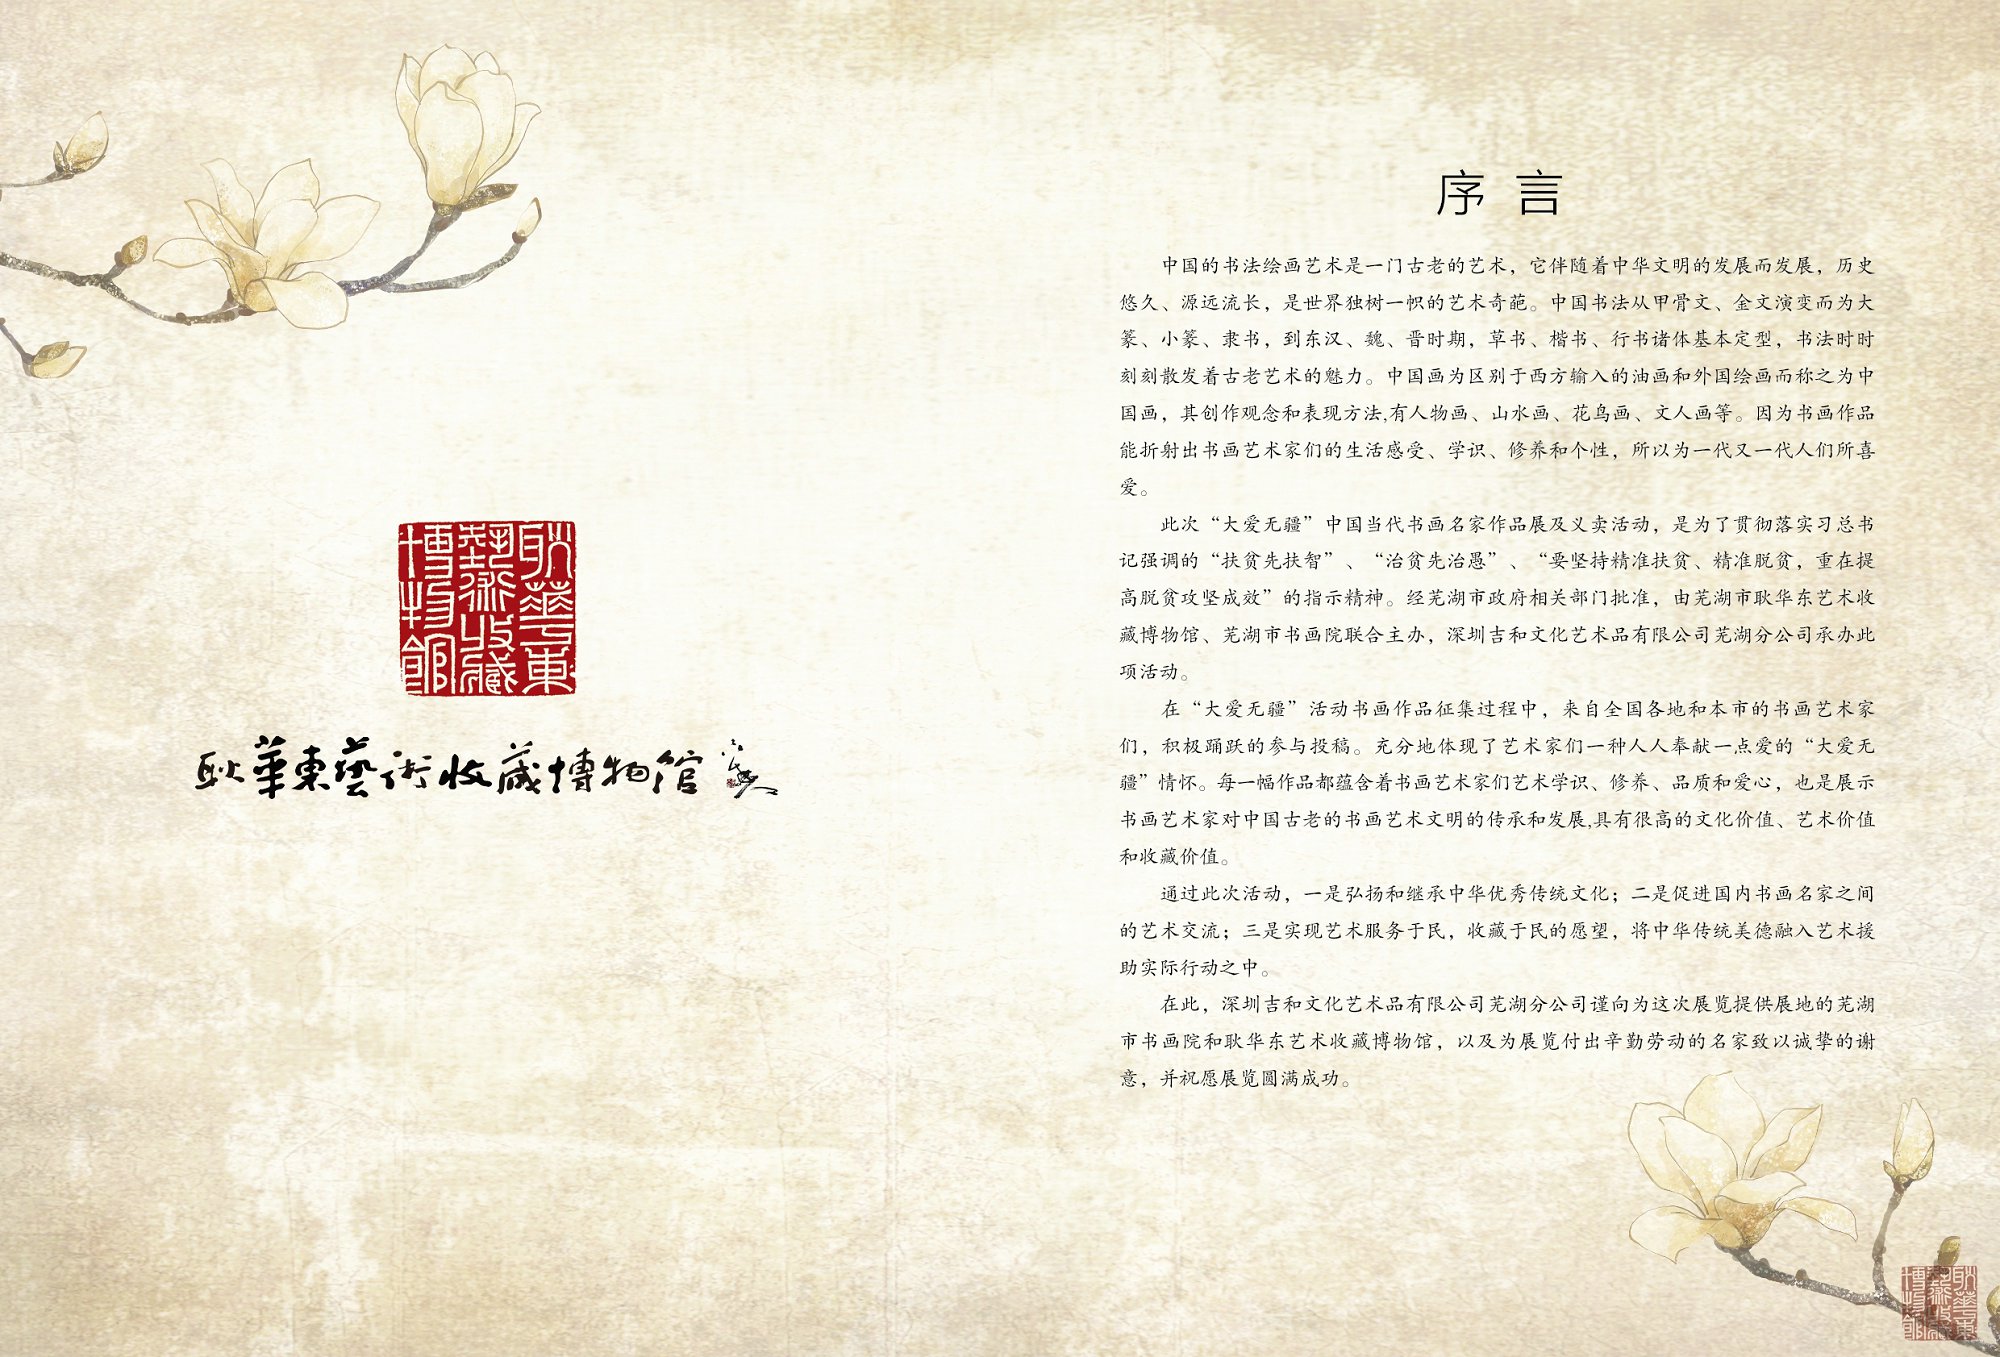 耿華東
藝術收藏
博物館
耿華東藝術收藏博物館
序言
中国的书法绘画艺术是一门古老的艺术，它伴随着中华文明的发展而发展，历史
悠久、源远流长，是世界独树一帜的艺术奇葩。中国书法从甲骨文、金文演变而为大
篆、小篆、隶书，到东汉、魏、晋时期，草书、楷书、行书诸体基本定型，书法时时
刻刻散发着古老艺术的魅力。中国画为区别于西方输入的油画和外国绘画而称之为中
国画，其创作观念和表现方法,有人物画、山水画、花鸟画、文人画等。因为书画作品
能折射出书画艺术家们的生活感受、学识、修养和个性，所以为一代又一代人们所喜
爱。
此次“大爱无疆”中国当代书画名家作品展及义卖活动，是为了贯彻落实习总书
记强调的“扶贫先扶智”、“治贫先治愚”、“要坚持精准扶贫、精准脱贫，重在提
高脱贫攻坚成效”的指示精神。经芜湖市政府相关部门批准，由芜湖市耿华东艺术收
藏博物馆、芜湖市书画院联合主办，深圳吉和文化艺术品有限公司芜湖分公司承办此
项活动。
在“大爱无疆”活动书画作品征集过程中，来自全国各地和本市的书画艺术家
们，积极踊跃的参与投稿。充分地体现了艺术家们一种人人奉献一点爱的“大爱无
疆”情怀。每一幅作品都蕴含着书画艺术家们艺术学识、修养、品质和爱心，也是展示
书画艺术家对中国古老的书画艺术文明的传承和发展,具有很高的文化价值、艺术价值
和收藏价值。
通过此次活动，一是弘扬和继承中华优秀传统文化；二是促进国内书画名家之间
的艺术交流；三是实现艺术服务于民，收藏于民的愿望，将中华传统美德融入艺术援
助实际行动之中。
在此，深圳吉和文化艺术品有限公司芜湖分公司谨向为这次展览提供展地的芜湖
市书画院和耿华东艺术收藏博物馆，以及为展览付出辛勤劳动的名家致以诚挚的谢
意，并祝愿展览圆满成功。
耿華東
藝術收藏
博物館